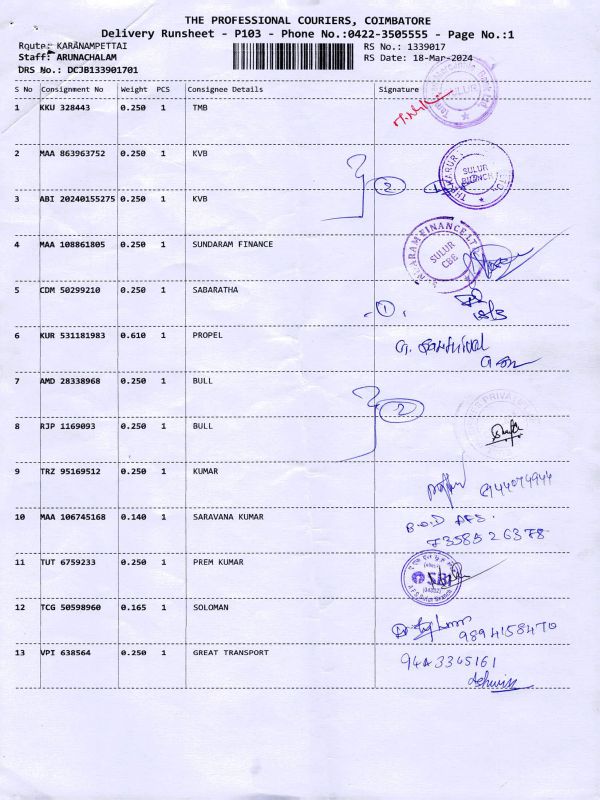 THE PROFESSIONAL COURIERS, COIMBATORE
Delivery Runsheet - P103 - Phone No.:0422-3505555 - Page No.:1
Route: KARANAMPETTAI
RS No.: 1339017
Staff: ARUNACHALAM
RS Date: 18-Mar-2024
DRS No.: DCJB133901701
S No Consignment No Weight PCS Consignee Details Signature
1 KKU 328443 0.250 1 TMB
SULUR
2 MAA 863963752 0.250 1 KVB
SULUR
BRANCH
2
3 ABI 20240155275 0.250 1 KVB
4 MAA 108861805 0.250 1 SUNDARAM FINANCE
SULUR
CBE
5 CDM 50299210 0.250 1 SABARATHA
1
6 KUR 531181983 0.610 1 PROPEL
7 AMD 28338968 0.250 1 BULL
2
8 RJP 1169093 0.250 1 BULL
9 TRZ 95169512 0.250 1 KUMAR
10 MAA 106745168 0.140 1 SARAVANA KUMAR
11 TUT 6759233 0.250 1 PREM KUMAR
SBI
12 TCG 50598960 0.165 1 SOLOMAN
9894158470
13 VPI 638564 0.250 1 GREAT TRANSPORT
Ashwin